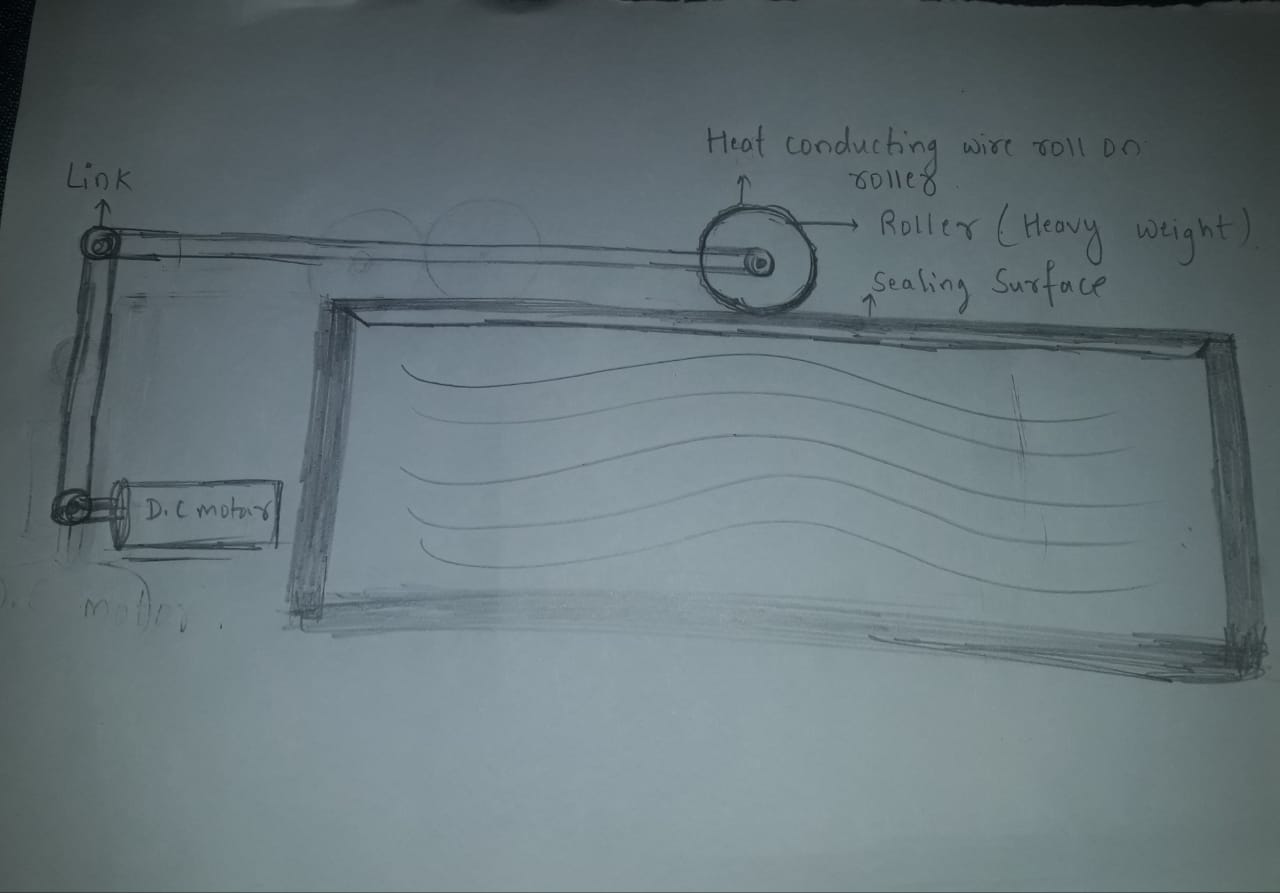 Heat conducting wire roll on
roller
Link
Roller (Heavy weight)
Sealing Surface
D.C motor
D.C motor.